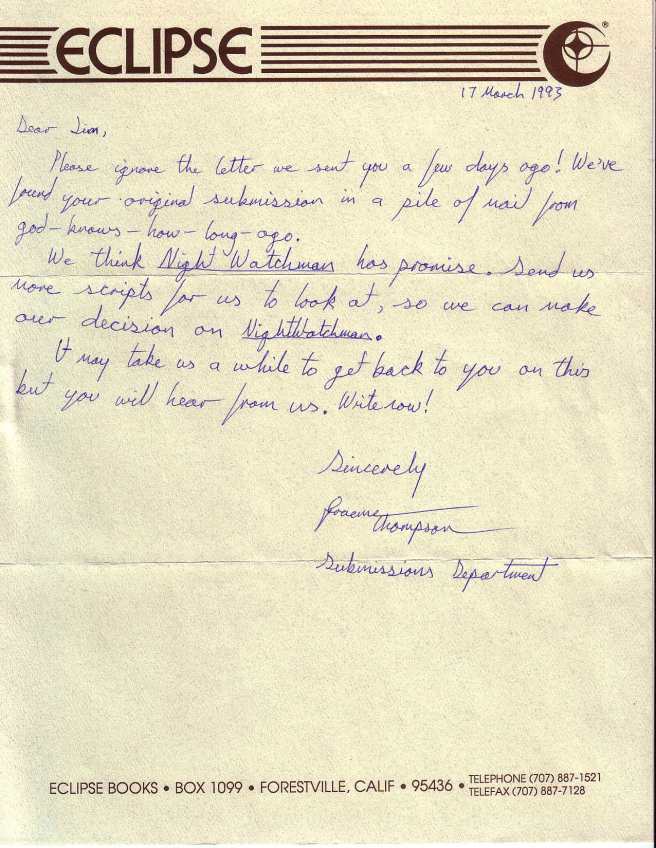 ECLIPSE
®
17 March 1993
Dear Jim,
Please ignore the letter we sent you a few days ago! We've
found your original submission in a pile of mail from
god-knows-how-long-ago.
We think Night Watchman has promise. Send us
more scripts for us to look at, so we can make
our decision on NightWatchman.
It may take us a while to get back to you on this
but you will hear from us. Write now!
Sincerely
Graeme
Thompson
Submissions Department
ECLIPSE BOOKS • BOX 1099 • FORESTVILLE, CALIF • 95436 • TELEPHONE (707) 887-1521
TELEFAX (707) 887-7128